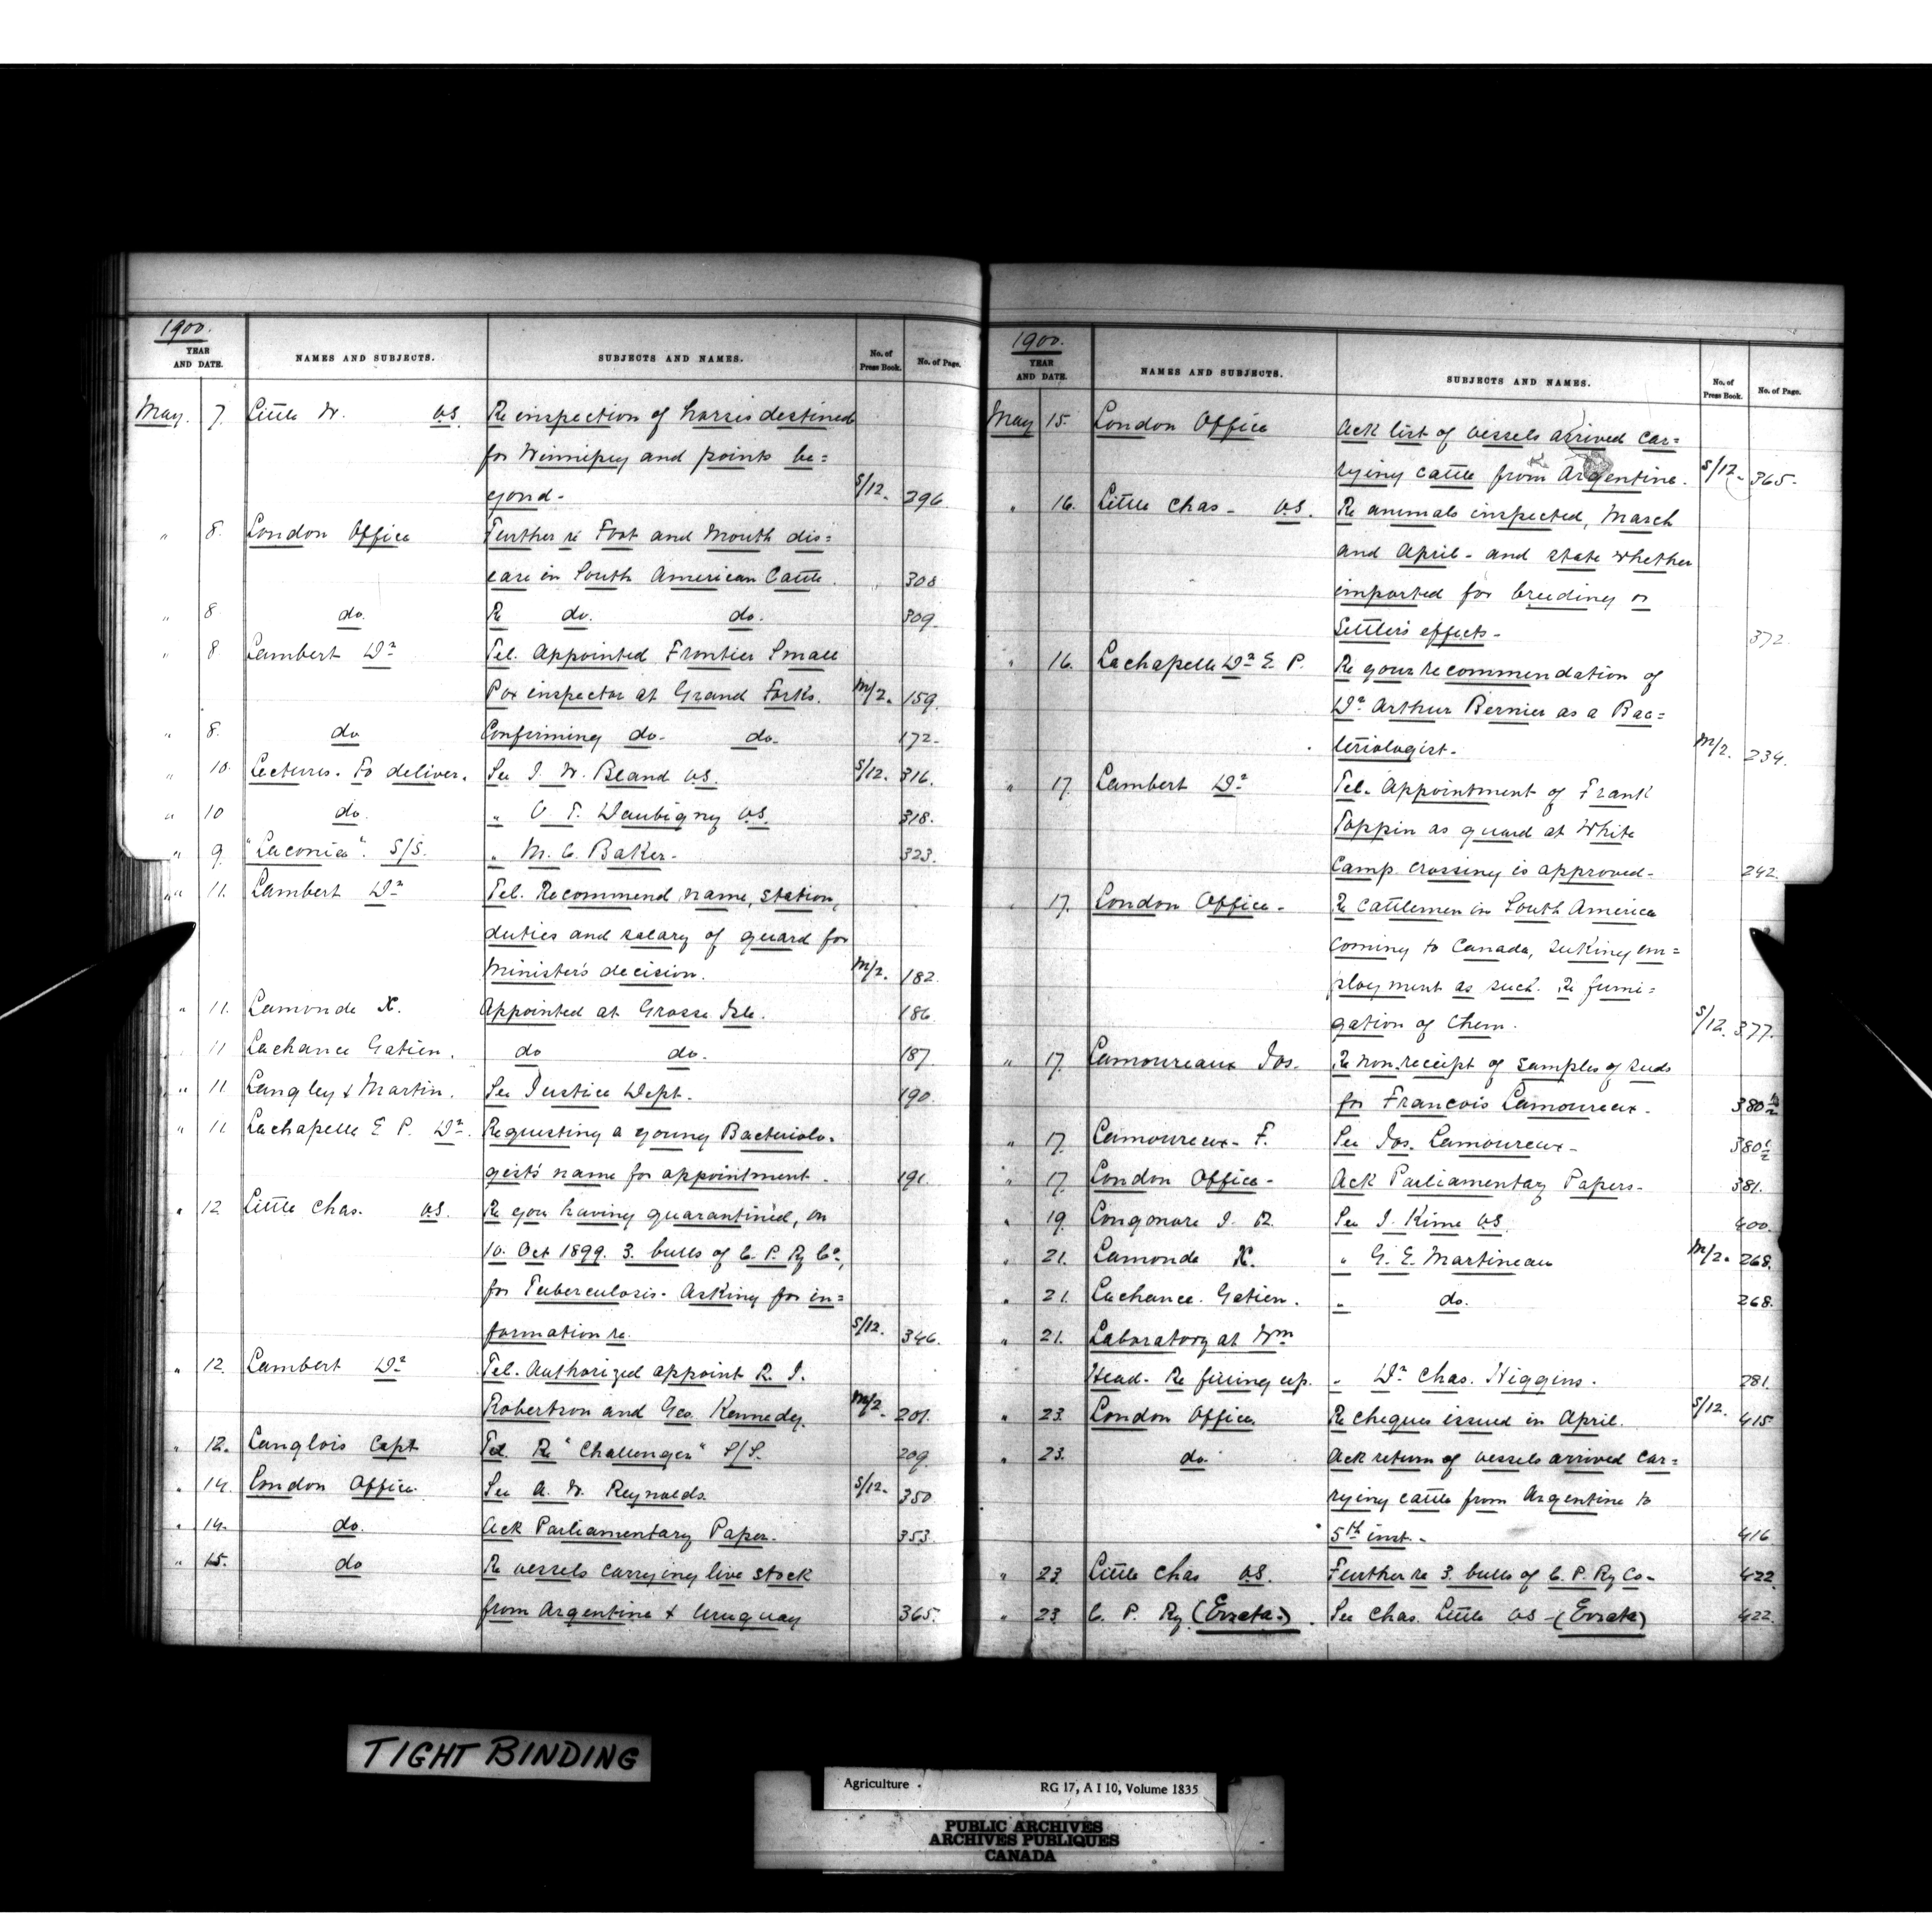 1900.
YEAR AND DATE. NAMES AND SUBJECTS. SUBJECTS AND NAMES. No. of Press Book. No. of Page.
May. 7. Little W. V.S. Re inspection of horses destined
for Winnipeg and points be=
yond- S/12. 296
" 8. London Office Further re Foot and Mouth dis=
ease in South American Cattle. " 308
" 8 do. Re do. do. 309.
" 8 Lambert Dr Tel. Appointed Frontier Small
Pox inspector at Grand Forks. M/2. 159.
" 8. do Confirming do. do. 172-
" 10. Lectures. To deliver. See J. W. Bland V.S. S/12. 316.
" 10 do. " O T. Daubigny V.S. 318.
" 9. "Laconia". S/S. " M. C. Baker. 323.
" 11. Lambert Dr Tel. Recommend name, station,
duties and salary of guard for
Minister's decision. M/2. 182.
" 11. Lamonde X. Appointed at Grosse Isle. 186.
11 Lachance Gatien. do do. 187.
" 11 Langley & Martin. See Justice Dept. 190.
" 11 Lachapelle E P. Dr. Requesting a young Bacteriolo-
gist's name for appointment. 191.
" 12 Little Chas. V.S. Re you having quarantined, on
10. Oct 1899. 3. bulls of C. P. Ry Co,
for Tuberculosis. Asking for in=
formation re. S/12. 346.
" 12. Lambert Dr Tel. Authorized appoint R. J.
Robertson and Geo. Kennedy. M/2. 201.
" 12. Langlois Capt Tel. Re "Challenger" S/S. 209.
" 14. London Office. See A. W. Reynolds. S/12. 350
" 14. do. Ack Parliamentary Paper. 353.
" 15. do Re vessels carrying live stock
from Argentine & Uruguay 365.
1900.
YEAR AND DATE. NAMES AND SUBJECTS. SUBJECTS AND NAMES. No. of Press Book. No. of Page.
May 15. London Office Ack list of vessels arrived car=
rying cattle from Argentine. S/12. 365.
" 16. Little Chas. V.S. Re animals inspected, March
and April- and state whether
imported for breeding or
Settlers effects- 372.
" 16. Lachapelle Dr E. P. Re your recommendation of
Dr Arthur Bernier as a Bac=
teriologist. M/2. 234.
" 17. Lambert Dr Tel. Appointment of Frank
Toppin as guard at White
Camp crossing is approved- 242.
17. London Office. Re cattlemen in South America
coming to Canada, seeking em=
ployment as such. Re fumi=
gation of them. S/12. 377.
" 17. Lamoureaux Jos. Re non-receipt of samples of seeds
for Francois Lamoureux. 380½
" 17. Lamoureux- F. See Jos. Lamoureux- 380½
" 17. London Office- Ack Parliamentary Papers- 381.
" 19. J. R. See J. Kime V.S. 400.
" 21. Lamonde X. " G. E. Martineau M/2. 268.
" 21. Lachance. Gatien. " do. 268.
" 21. Laboratory at Wm
Head- Re fitting up. " Dr Chas. Higgins. 281.
" 23. London Office. Re cheques issued in April. S/12. 415.
" 23. do. Ack return of vessels arrived car-
rying cattle from Argentine to
5th inst. 416
" 23. Little Chas V.S. Further re 3. bulls of C. P. Ry Co- 422.
" 23 C. P. Ry (Errata.) See Chas. Little V.S. (Errata) 422.
TIGHT BINDING
Agriculture. RG 17, A I 10, Volume 1835
PUBLIC ARCHIVES
ARCHIVES PUBLIQUES
CANADA